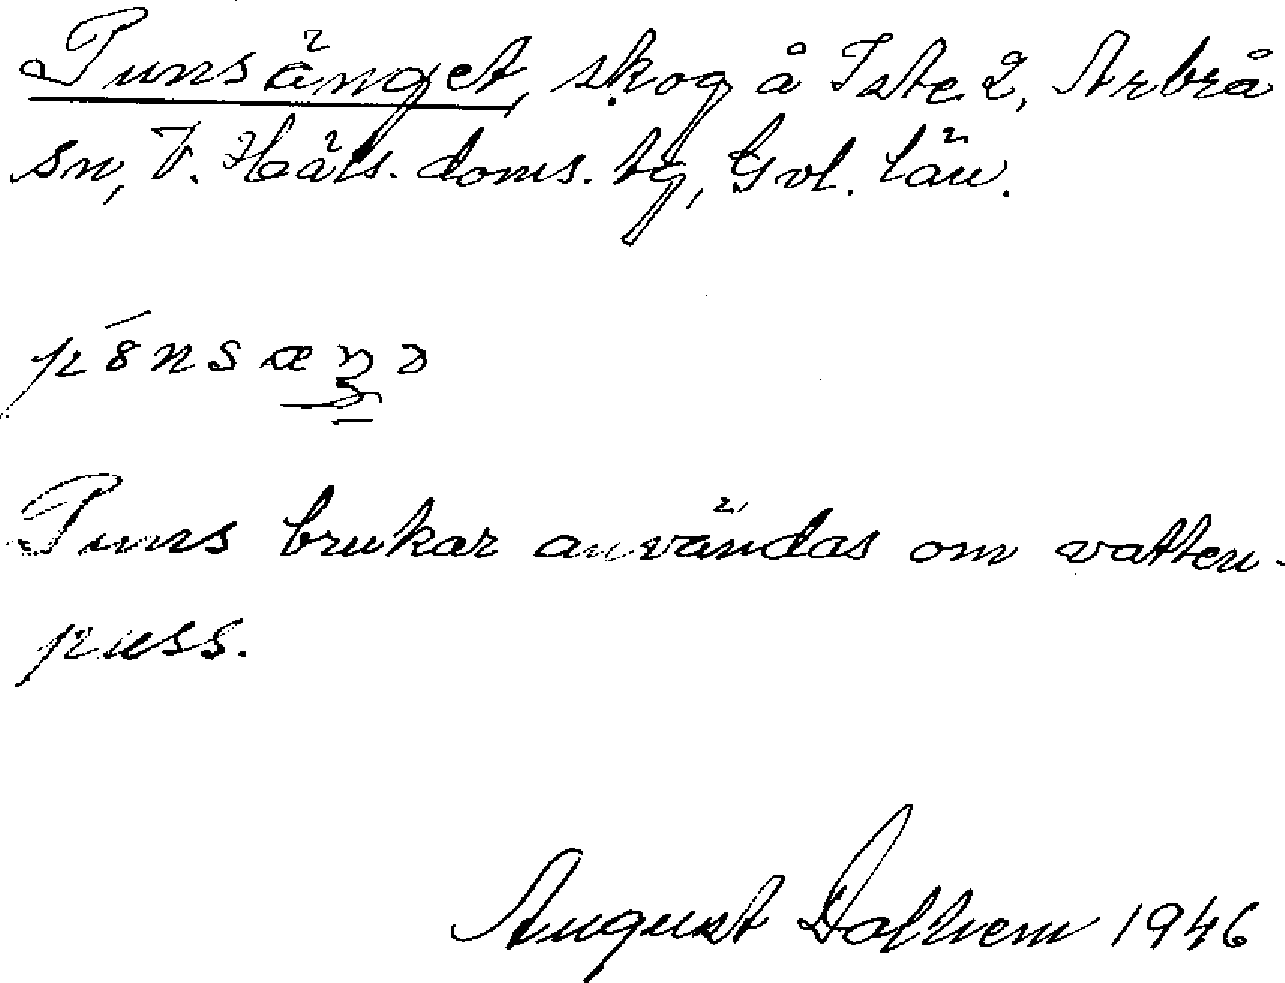 Punsänget, skog å Iste 2, Arbrå
sn, V. Häls. doms. tg, Gvl. län.
Puns brukar användas om vatten-
puss.
August Dalhem 1946